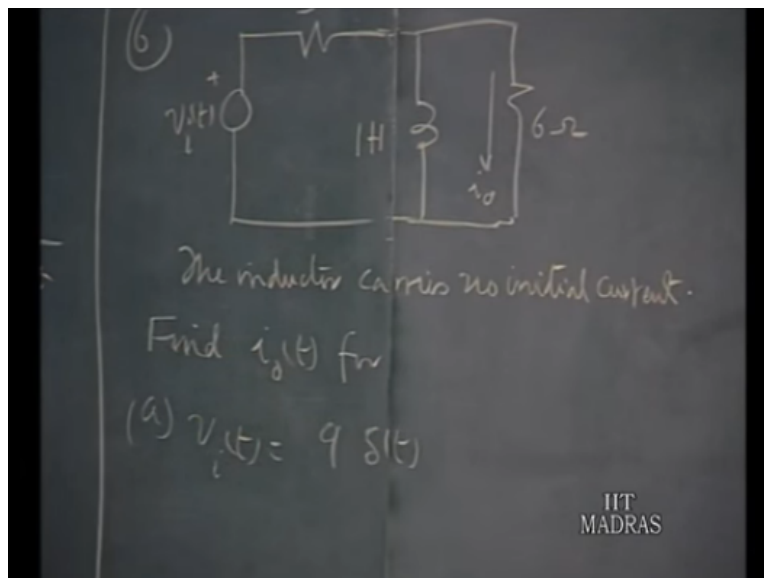 6
+
vᵢ(t)
1H
6Ω
i₀
The inductor carries no initial current.
Find i₀(t) for
(a) vᵢ(t) = 9 δ(t)
IIT
MADRAS